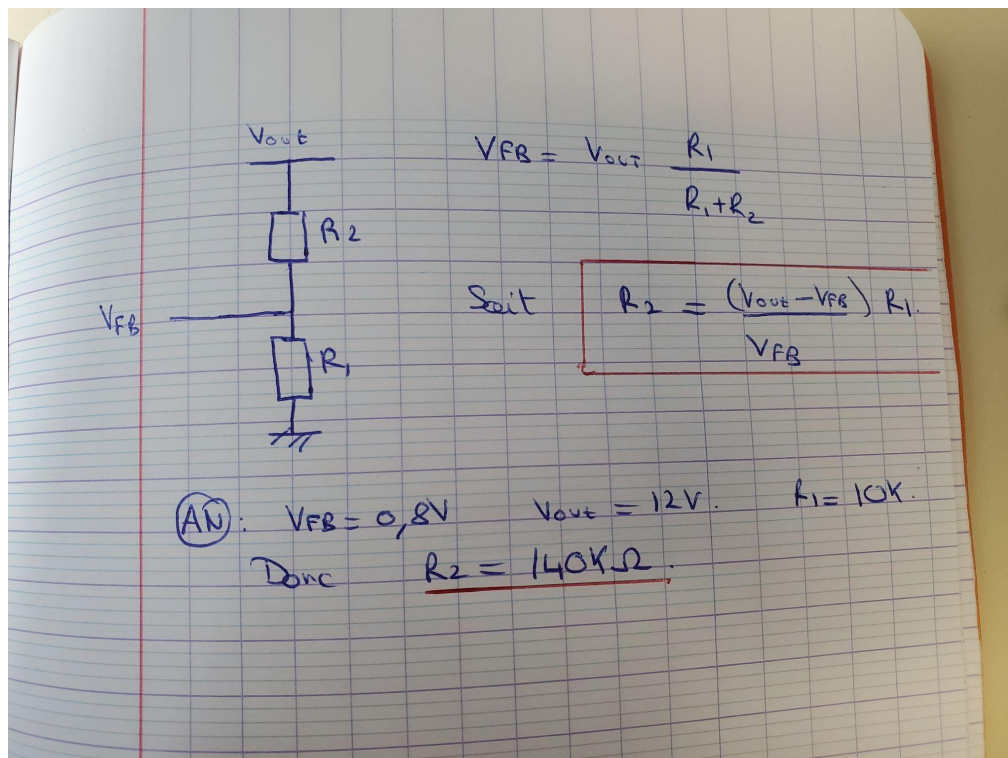 Vout
R2
VFB
R1
VFB = VOUT R1 / R1+R2
Soit R2 = (Vout - VFB) R1. / VFB
AN : VFB = 0,8V Vout = 12V. R1 = 10K.
Donc R2 = 140KΩ.